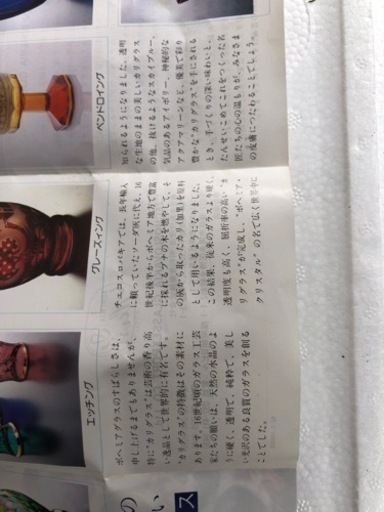 の
い
ス
エッチング
ボヘミアグラスのすばらしさは、
申し上げるまでもありませんが、
特に"カリグラス"は芸術の香り高
い逸品として世界的に有名です。
"カリグラス"の特徴はその素材に
あります。16世紀頃のガラス工芸
家たちの願いは、天然の水晶のよ
うに硬く、透明で、純粋で、美し
い光沢のある良質のガラスを創る
ことでした。
グレースィング
チェコスロバキアでは、長年輸入
に頼っていたソーダ灰に代え、16
世紀後半からボヘミア地方で豊富
に採れるブナの木を燃やして、そ
の灰から取ったカリ(加里)を原料
として用いるようになりました。
この結果、従来のガラスより硬く、
透明度も高く、屈折率の高い"カ
リグラス"が完成し、"ボヘミア・
クリスタル"の名で広く世界中に
ペンドロイング
知られるようになりました。透明
な生地のままの美しいカリグラス
の他、抜けるようなスカイブルー、
気品のあるアイボリー、神秘的な
アクアマリーンなど、優美で彩り
豊かな"カリグラス"を手にされる
とき、手づくりの深い味わいと、
たんせいこめてこれをつくった名
匠たちの心の温もりが、みなさま
の皮膚につたわることでしょう。